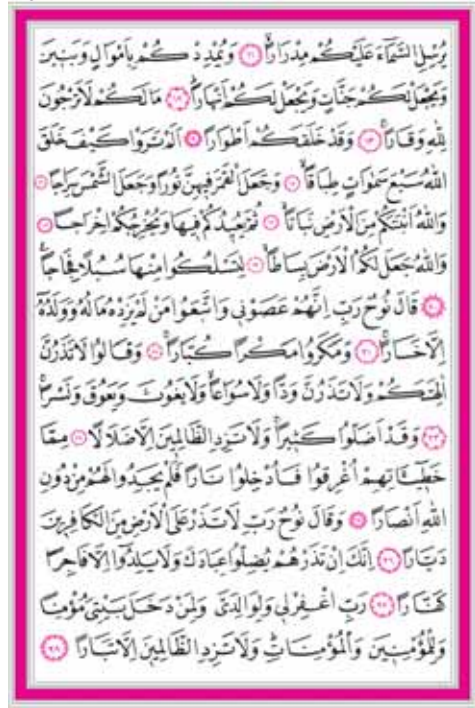 يُرْسِلِ السَّمَاءَ عَلَيْكُمْ مِدْرَارًا ﴿١١﴾ وَيُمْدِدْكُمْ بِاَمْوَالٍ وَبَنِينَ
وَيَجْعَلْ لَكُمْ جَنَّاتٍ وَيَجْعَلْ لَكُمْ اَنْهَارًا ﴿١٢﴾ مَا لَكُمْ لَا تَرْجُونَ
لِلّٰهِ وَقَارًا ﴿١٣﴾ وَقَدْ خَلَقَكُمْ اَطْوَارًا ﴿١٤﴾ اَلَمْ تَرَوْا كَيْفَ خَلَقَ
اللّٰهُ سَبْعَ سَمٰوَاتٍ طِبَاقًا ﴿١٥﴾ وَجَعَلَ الْقَمَرَ فِيهِنَّ نُورًا وَجَعَلَ الشَّمْسَ سِرَاجًا ﴿١٦﴾
وَاللّٰهُ اَنْبَتَكُمْ مِنَ الْاَرْضِ نَبَاتًا ﴿١٧﴾ ثُمَّ يُعِيدُكُمْ فِيهَا وَيُخْرِجُكُمْ اِخْرَاجًا ﴿١٨﴾
وَاللّٰهُ جَعَلَ لَكُمُ الْاَرْضَ بِسَاطًا ﴿١٩﴾ لِتَسْلُكُوا مِنْهَا سُبُلًا فِجَاجًا
﴿٢٠﴾ قَالَ نُوحٌ رَبِّ اِنَّهُمْ عَصَوْنِي وَاتَّبَعُوا مَنْ لَمْ يَزِدْهُ مَالُهُ وَوَلَدُهُ
اِلَّا خَسَارًا ﴿٢١﴾ وَمَكَرُوا مَكْرًا كُبَّارًا ﴿٢٢﴾ وَقَالُوا لَا تَذَرُنَّ
اٰلِهَتَكُمْ وَلَا تَذَرُنَّ وَدًّا وَلَا سُوَاعًا وَلَا يَغُوثَ وَيَعُوقَ وَنَسْرًا
﴿٢٣﴾ وَقَدْ اَضَلُّوا كَثِيرًا وَلَا تَزِدِ الظَّالِمِينَ اِلَّا ضَلَالًا ﴿٢٤﴾ مِمَّا
خَطِٓيـَٔاتِهِمْ اُغْرِقُوا فَاُدْخِلُوا نَارًا فَلَمْ يَجِدُوا لَهُمْ مِنْ دُونِ
اللّٰهِ اَنْصَارًا ﴿٢٥﴾ وَقَالَ نُوحٌ رَبِّ لَا تَذَرْ عَلَى الْاَرْضِ مِنَ الْكَافِرِينَ
دَيَّارًا ﴿٢٦﴾ اِنَّكَ اِنْ تَذَرْهُمْ يُضِلُّوا عِبَادَكَ وَلَا يَلِدُوا اِلَّا فَاجِرًا
كَفَّارًا ﴿٢٧﴾ رَبِّ اغْفِرْ لِي وَلِوَالِدَيَّ وَلِمَنْ دَخَلَ بَيْتِيَ مُؤْمِنًا
وَلِلْمُؤْمِنِينَ وَالْمُؤْمِنَاتِ وَلَا تَزِدِ الظَّالِمِينَ اِلَّا تَبَارًا ﴿٢٨﴾